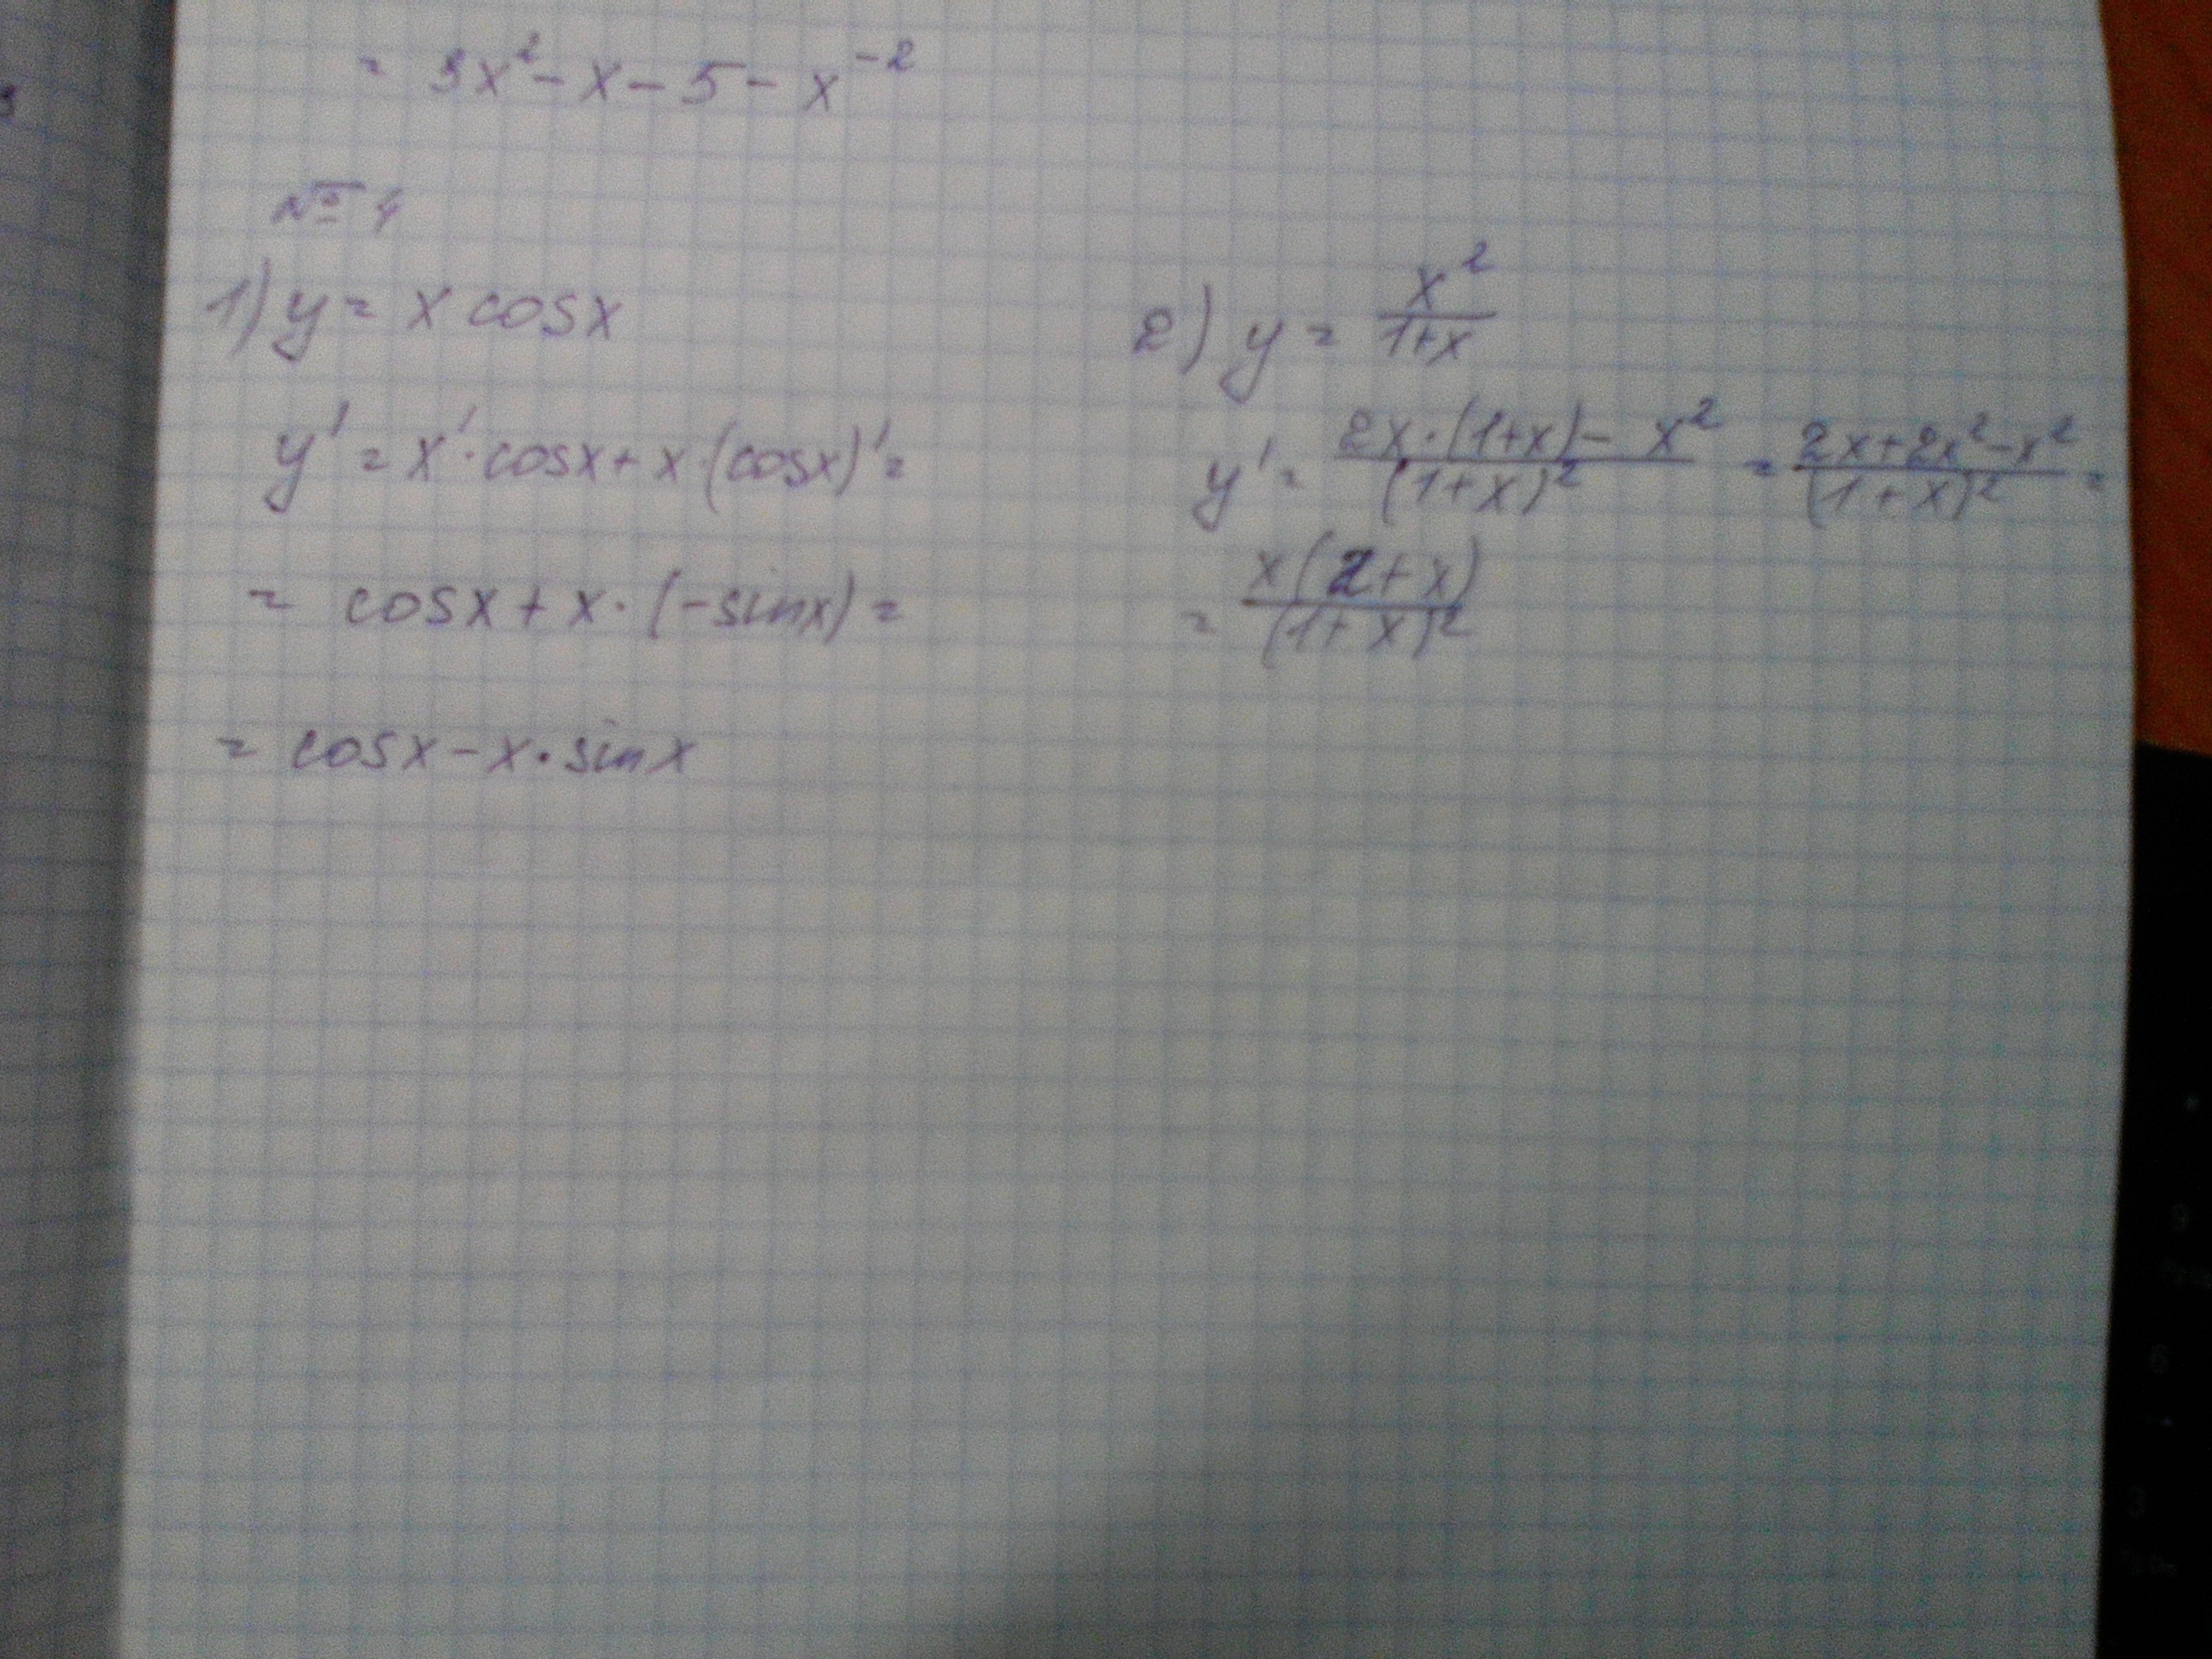 = 3x² - x - 5 - x⁻²
№ 4
1) y = x cosx
y' = x' · cosx + x · (cosx)' =
= cosx + x · (-sinx) =
= cosx - x · sinx
2) y = x²/(1+x)
y' = (2x · (1+x) - x²)/(1+x)² = (2x+2x²-x²)/(1+x)² =
= x(2+x)/(1+x)²